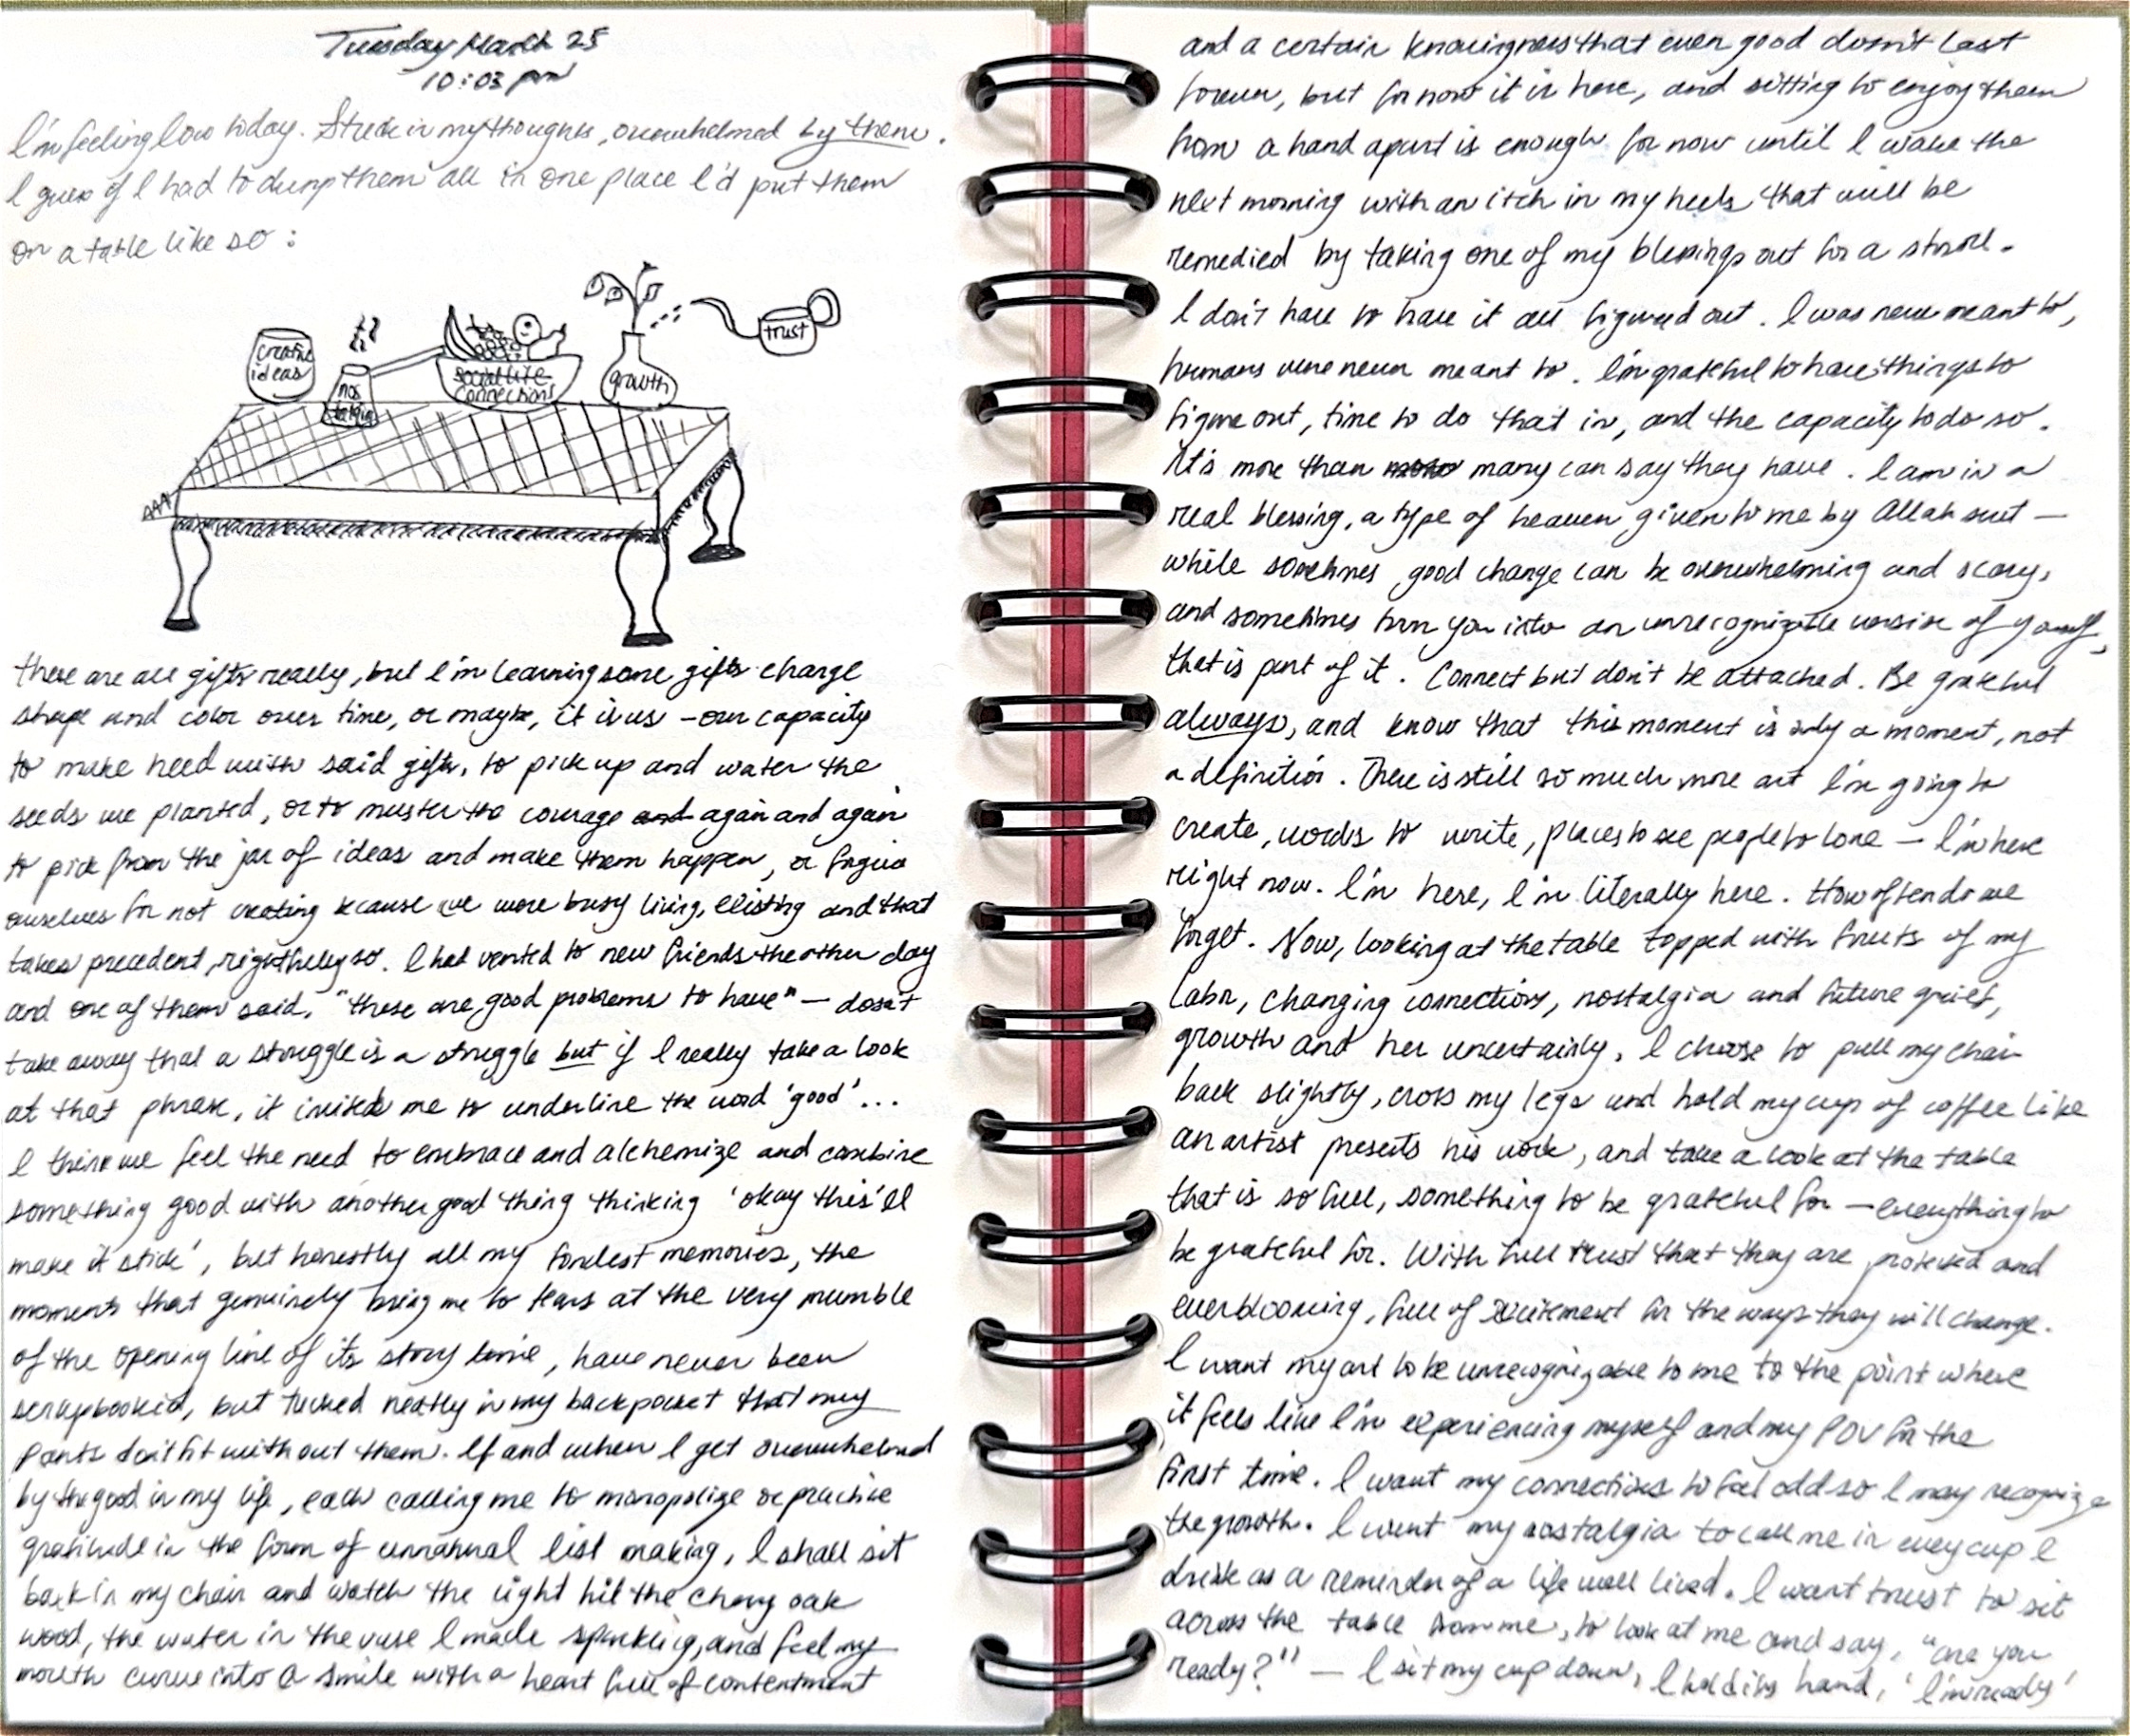 Tuesday March 25
10:03 pm
I'm feeling low today. Stuck in my thoughts, overwhelmed by them.
I guess if I had to dump them all in one place I'd put them
on a table like so:
creative
ideas
nos
talgia
social life
connections
growth
trust
these are all gifts really, but I'm learning some gifts change
shape and color over time, or maybe, it is us - our capacity
to make heed with said gifts, to pick up and water the
seeds we planted, or to muster the courage and again and again
to pick from the jar of ideas and make them happen, or forgive
ourselves for not creating because we were busy living, existing and that
takes precedent, rightfully so. I had vented to new friends the other day
and one of them said, "these are good problems to have" — doesn't
take away that a struggle is a struggle but if I really take a look
at that phrase, it invited me to underline the word 'good'...
I think we feel the need to embrace and alchemize and combine
something good with another good thing thinking 'okay this'll
make it stick', but honestly all my fondest memories, the
moments that genuinely bring me to tears at the very mumble
of the opening line of its story time, have never been
scrapbooked, but tucked neatly in my back pocket that my
pants don't fit without them. If and when I get overwhelmed
by the good in my life, each calling me to monopolize or practice
gratitude in the form of unnatural list making, I shall sit
back in my chair and watch the light hit the cherry oak
wood, the water in the vase I made sparkling, and feel my
mouth curve into a smile with a heart full of contentment
and a certain knowingness that even good doesn't last
forever, but for now it is here, and sitting to enjoy them
from a hand apart is enough for now until I wake the
next morning with an itch in my heels that will be
remedied by taking one of my blessings out for a stroll.
I don't have to have it all figured out. I was never meant to,
humans were never meant to. I'm grateful to have things to
figure out, time to do that in, and the capacity to do so.
It's more than many can say they have. I am in a
real blessing, a type of heaven given to me by Allah swt —
while sometimes good change can be overwhelming and scary,
and sometimes turn you into an unrecognizable version of yourself,
that is part of it. Connect but don't be attached. Be grateful
always, and know that this moment is only a moment, not
a definition. There is still so much more art I'm going to
create, words to write, places to see people to love — I'm here
right now. I'm here, I'm literally here. How often do we
forget. Now, looking at the table topped with fruits of my
labor, changing connections, nostalgia and future grief,
growth and her uncertainty, I choose to pull my chair
back slightly, cross my legs and hold my cup of coffee like
an artist presents his work, and take a look at the table
that is so full, something to be grateful for — everything to
be grateful for. With full trust that they are protected and
everblooming, full of excitement for the ways they will change.
I want my art to be unrecognizable to me to the point where
it feels like I'm experiencing myself and my POV for the
first time. I want my connections to feel odd so I may recognize
the growth. I want my nostalgia to call me in every cup I
drink as a reminder of a life well lived. I want trust to sit
across the table from me, to look at me and say, "are you
ready?" — I set my cup down, I hold its hand, 'I'm ready'